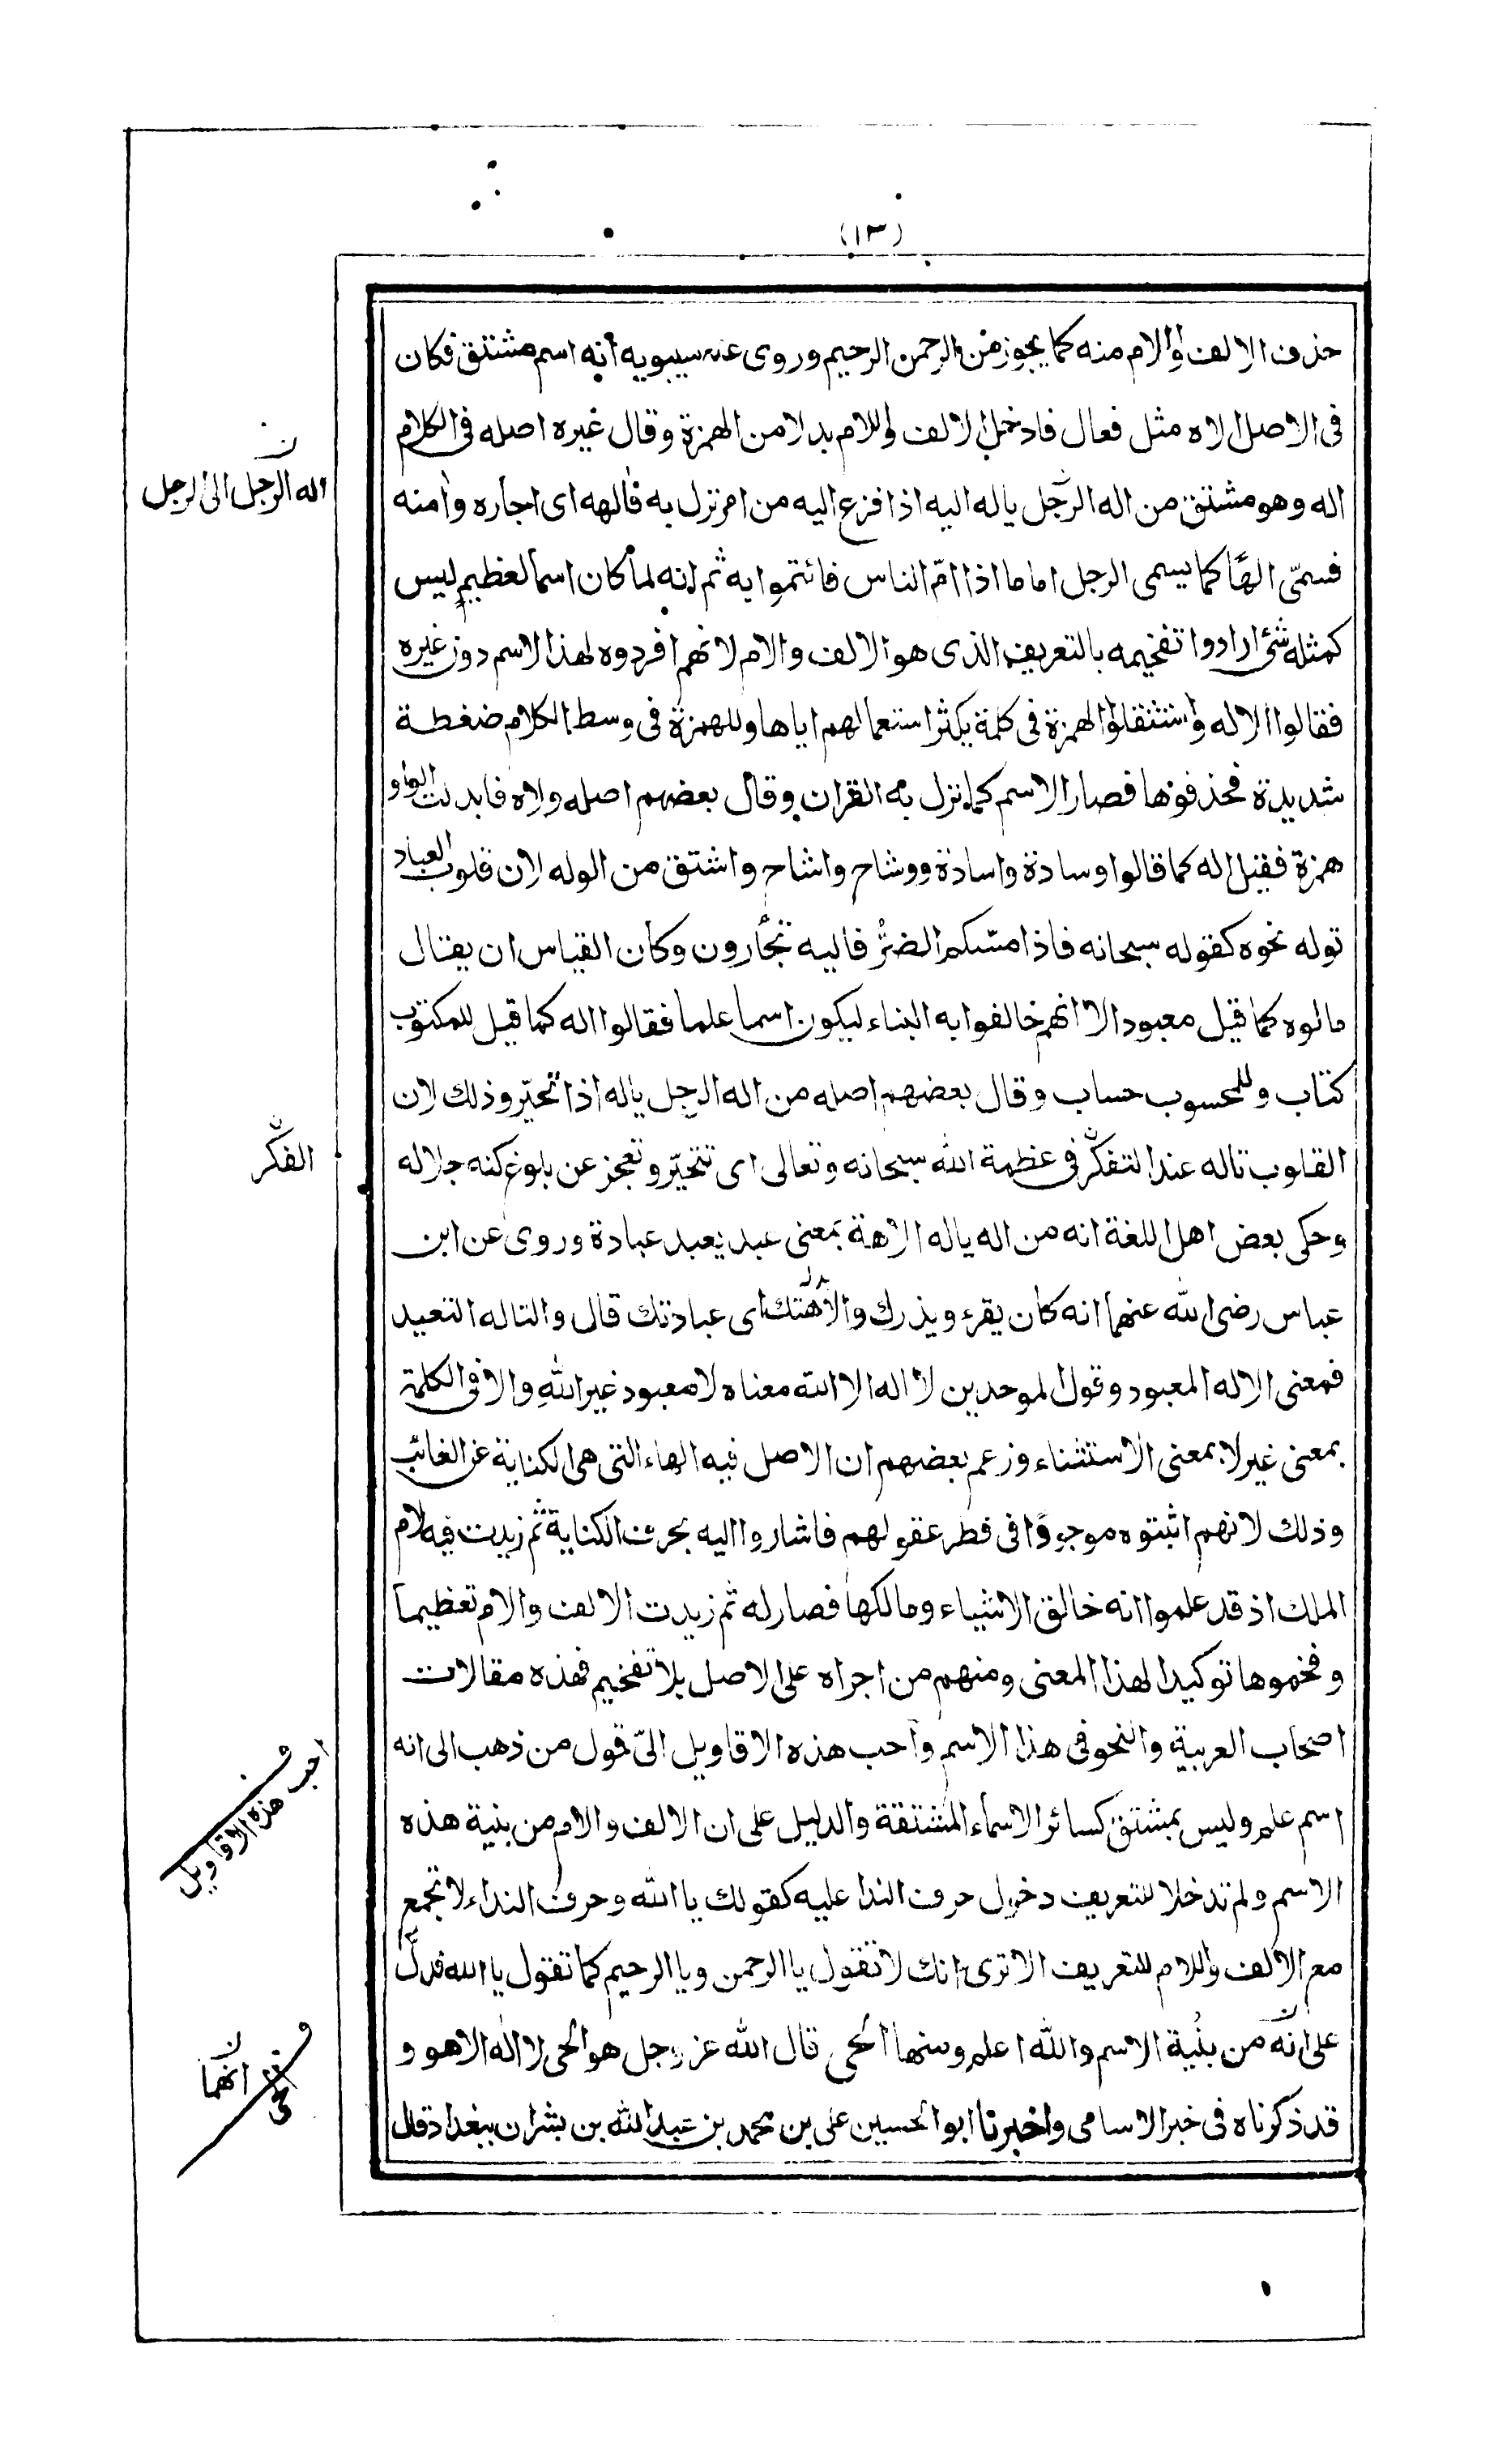 (١٣)
حذف الالف والام منه كما يجوز من الرحمن الرحيم وروى عن سيبويه انه اسم مشتق فكان
فى الاصل الاه مثل فعال فادخل الالف واللام بدلا من الهمزة وقال غيره اصله فى الكلام
اله وهو مشتق من اله الرّجل ياله اليه اذا فزع اليه من امر نزل به فالهه اى اجاره وامنه
فسمّى الهًا كما يسمى الرجل اماما اذا امّ الناس فائتموا به ثم انه لما كان اسما لعظيم ليس
كمثله شئ ارادوا تفخيمه بالتعريف الذى هو الالف والام لانهم افردوه لهذا الاسم دون غيره
فقالوا الاله واستثقلوا الهمزة فى كلمة يكثر استعمالهم اياها وللهمزة فى وسط الكلام ضغطة
شديدة فحذفوها فصار الاسم كما نزل به القران وقال بعضهم اصله ولاه فابدلت الواو
همزة فقيل اله كما قالوا وسادة واسادة ووشاح واشاح واشتق من الوله لان قلوب العباد
توله نحوه كقوله سبحانه فاذا مسّكم الضرّ فاليه تجأرون وكان القياس ان يقال
مالوه كما قيل معبود الا انهم خالفوا به البناء ليكون اسما علما فقالوا اله كما قيل للمكتوب
كتاب وللمحسوب حساب وقال بعضهم اصله من اله الرجل ياله اذا تحيّر وذلك لان
القلوب تاله عند التفكّر فى عظمة الله سبحانه وتعالى اى تتحيّر وتعجز عن بلوغ كنه جلاله
وحكى بعض اهل اللغة انه من اله ياله الاهة بمعنى عبد يعبد عبادة وروى عن ابن
عباس رضى الله عنهما انه كان يقرء ويذرك والاهتك اى عبادتك قال والتاله التعبد
فمعنى الاله المعبود وقول الموحدين لا اله الا الله معناه لا معبود غير الله والا فى الكلمة
بمعنى غير لا بمعنى الاستثناء وزعم بعضهم ان الاصل فيه الهاء التى هى الكناية عن الغائب
وذلك لانهم اثبتوه موجودًا فى فطر عقولهم فاشاروا اليه بحرف الكناية ثم زيدت فيه لام
الملك اذ قد علموا انه خالق الاشياء ومالكها فصار له ثم زيدت الالف والام تعظيما
وفخموها توكيدا لهذا المعنى ومنهم من اجراه على الاصل بلا تفخيم فهذه مقالات
اصحاب العربية والنحو فى هذا الاسم واحب هذه الاقاويل الىّ قول من ذهب الى انه
اسم علم وليس بمشتق كسائر الاسماء المشتقة والدليل على ان الالف والام من بنية هذه
الاسم ولم تدخلا للتعريف دخول حرف الندا عليه كقولك يا الله وحرف النداء لا تجمع
مع الالف واللام للتعريف الا ترى انك لا تقول يا الرحمن ويا الرحيم كما تقول يا الله فدلّ
على انّه من بنية الاسم والله اعلم ومنها الحى قال الله عز وجل هو الحى لا اله الا هو و
قد ذكرناه فى خبر الاسامى واخبرنا ابو الحسين على بن محمد بن عبد الله بن بشران ببغداد قال
ن
اله الرّجل الى الرجل
الفكّر
احب هذه الاقاويل
ن
انهما